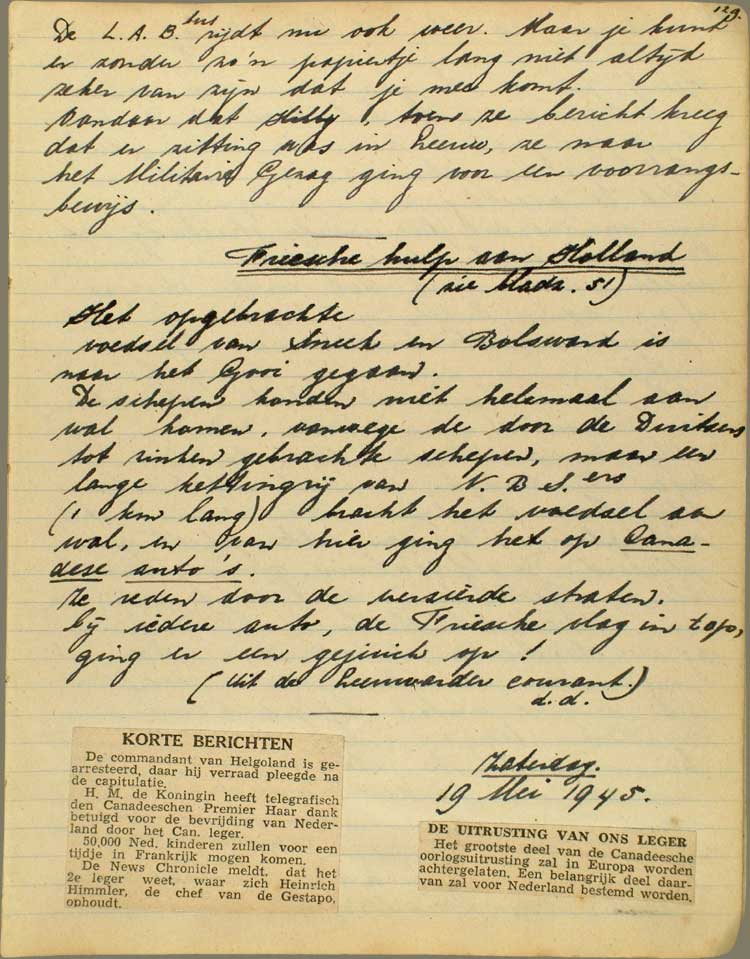 129.
De L.A.B. bus rijdt nu ook weer. Maar je kunt
er zonder zo'n papiertje lang niet altijd
zeker van zijn dat je mee komt.
Vandaar dat Hilly, toen ze bericht kreeg
dat er zitting was in Leeuw, ze naar
het Militair Gezag ging voor een voorrangs-
bewijs.
Friesche hulp aan Holland
(zie bladz. 51)
Het opgebrachte
voedsel van Sneek en Bolsward is
naar het Gooi gegaan.
De schepen konden niet helemaal aan
wal komen, vanwege de door de Duitsers
tot zinken gebrachte schepen, maar een
lange kettingrij van N.B.S.ers
(1 km lang) bracht het voedsel aan
wal, en van hier ging het op Cana-
dese auto's.
Ze reden door de versierde straten.
bij iedere auto, de Friesche vlag in top,
ging er een gejuich op!
(Uit de Leeuwarder courant.)
d.d.
KORTE BERICHTEN
De commandant van Helgoland is ge-
arresteerd, daar hij verraad pleegde na
de capitulatie.
H. M. de Koningin heeft telegrafisch
den Canadeeschen Premier Haar dank
betuigd voor de bevrijding van Neder-
land door het Can. leger.
50,000 Ned. kinderen zullen voor een
tijdje in Frankrijk mogen komen.
De News Chronicle meldt, dat het
2e leger weet, waar zich Heinrich
Himmler, de chef van de Gestapo,
ophoudt.
Zaterdag.
19 Mei 1945.
DE UITRUSTING VAN ONS LEGER
Het grootste deel van de Canadeesche
oorlogsuitrusting zal in Europa worden
achtergelaten. Een belangrijk deel daar-
van zal voor Nederland bestemd worden.